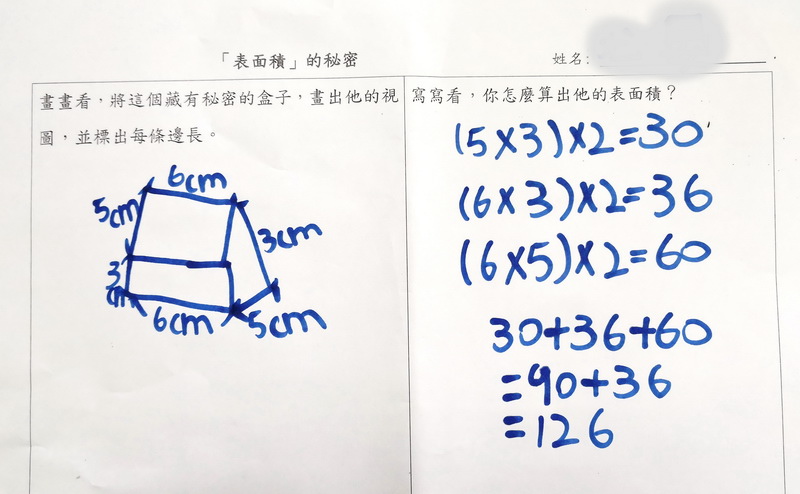 「表面積」的秘密
姓名:
畫畫看，將這個藏有秘密的盒子，畫出他的視
圖，並標出每條邊長。
6cm
5cm
3cm
3
cm
6cm
5cm
寫寫看，你怎麼算出他的表面積？
(5×3)×2=30
(6×3)×2=36
(6×5)×2=60
30+36+60
=90+36
=126